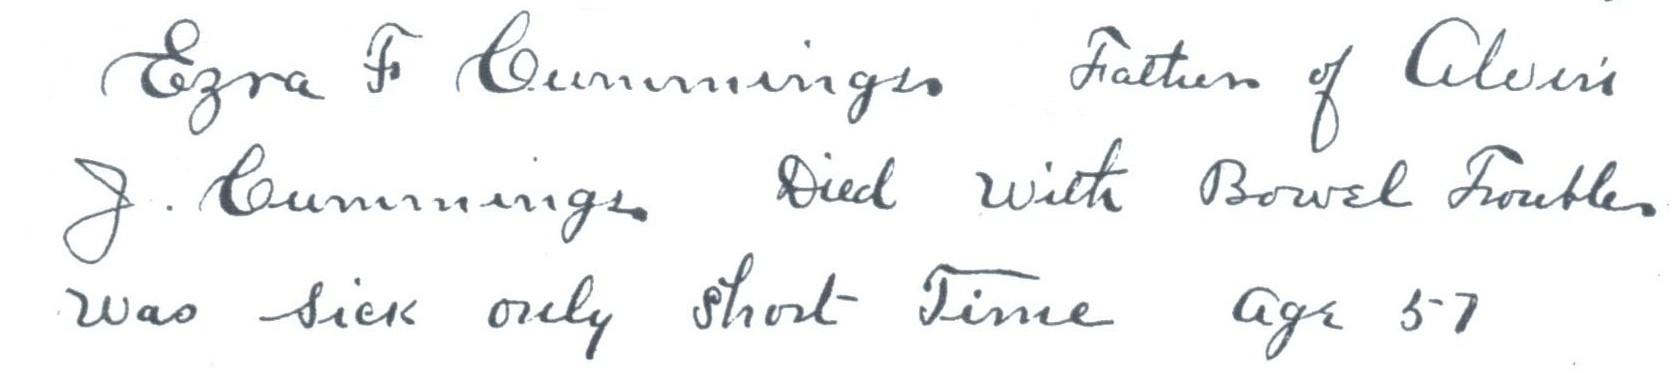 Ezra F Cummings Father of Alvin
J. Cummings Died With Bowel Trouble
Was sick only short Time age 57